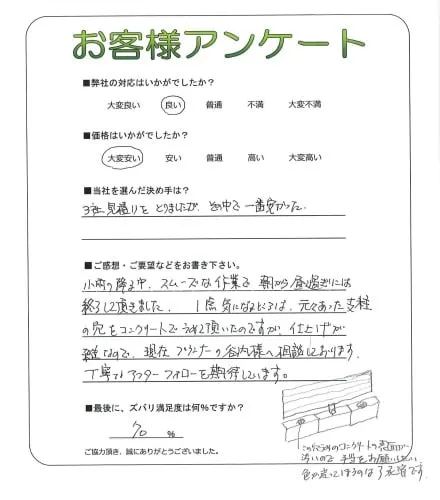 お客様アンケート
■弊社の対応はいかがでしたか?
大変良い 良い 普通 不満 大変不満
■価格はいかがでしたか?
大変安い 安い 普通 高い 大変高い
■当社を選んだ決め手は?
3社見積りをとりましたが、その中で一番安かった
■ご感想・ご要望などをお書き下さい。
小雨の降る中、スムーズな作業で朝から昼過ぎには
終了して頂きました。1点気になるところは、元々あった支柱
の穴をコンクリートでうめて頂いたのですが、仕上げが
雑なので、現在プランナーの谷内様へ相談しております。
丁寧なアフターフォローを期待しています。
■最後に、ズバリ満足度は何%ですか?
70 %
ご協力頂き、誠にありがとうございました。
この穴うめのコンクリートの表面が
渋いので手直をお願いしたい
色が違ってしまうのは了承済です。